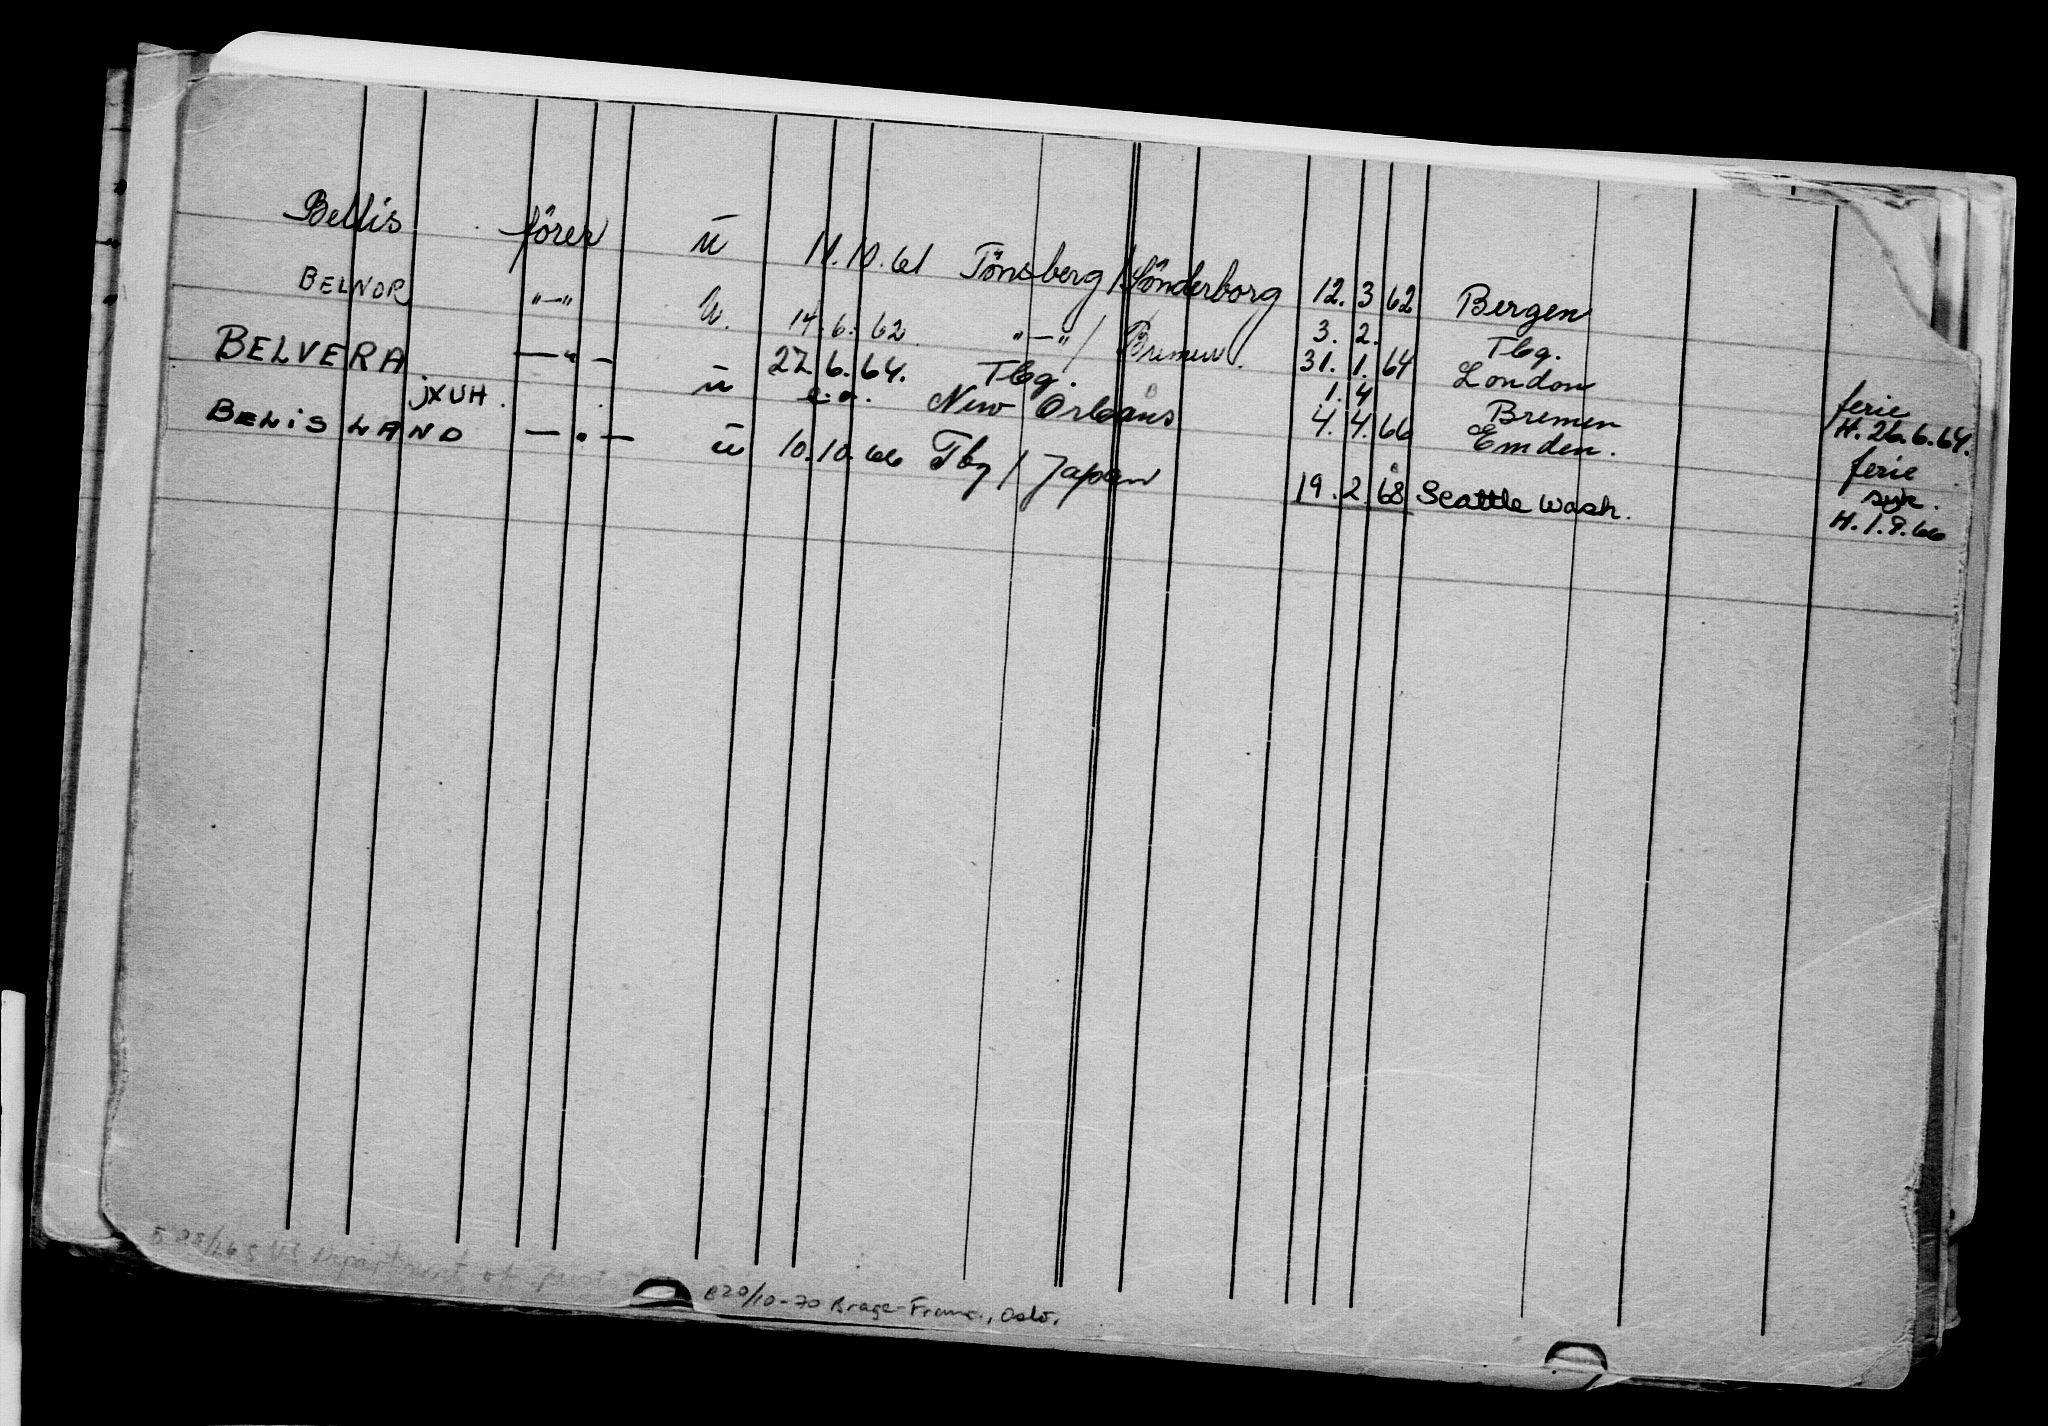 Bellis förer u 11.10.61 Tönsberg / Sönderborg 12. 3 62 Bergen
BELNOR "—" u. 14.6.62. "—" / Bremen. 3. 2. Tbg.
BELVERA —"— 27.6.64. Tbg. 31. 1. 64 London ferie
jXUH. u e.o. New Orleans 1. 4 Bremen H. 26.6.64.
4. 4. 66 Emden. ferie
BELISLAND —"— u 10.10.66 Tbg / Japan 19. 2 68 Seattle Wash. syk.
H. 1.9.66
Department of
e 20/10-70 Brage-Fram., Oslo.